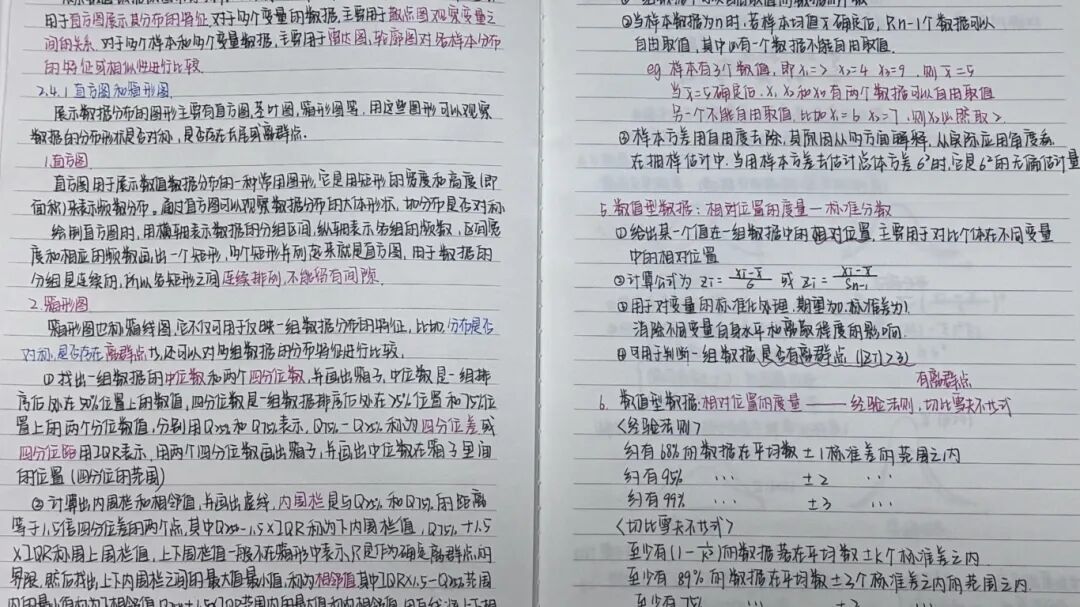 用于直方图展示其分布的特征,对于两个变量的数据,主要用于散点图观察变量之
间的关系.对于两个样本和多个变量数据,主要用于雷达图,轮廓图对各样本分布
的特征或相似性进行比较.
2.4.1 直方图和箱形图
展示数据分布的图形主要有直方图,茎叶图,箱形图等,用这些图形可以观察
数据的分布形状是否对称,是否存在长尾或离群点.
1.直方图
直方图用于展示数值数据分布的一种常用图形,它是用矩形的宽度和高度(即
面积)来表示频数分布。通过直方图可以观察数据分布的大体形状,如分布是否对称
绘制直方图时,用横轴表示数据的分组区间,纵轴表示各组的频数,区间宽
度和相应的频数画出一个矩形,多个矩形并列起来就是直方图,用于数据的
分组是连续的,所以各矩形之间连续排列,不能留有间隙.
2.箱形图
箱形图也称箱线图,它不仅可用于反映一组数据分布的特征,比如,分布是否
对称,是否存在离群点,还可以对多组数据的分布特征进行比较.
①找出一组数据的中位数和两个四分位数,并画出箱子,中位数是一组排
序后处在50%位置上的数值,四分位数是一组数据排序后处在25%位置和75%位
置上的两个分位数值,分别用Q25%和Q75%表示,Q75%-Q25%称为四分位差或
四分位距用IQR表示,用两个四分位数画出箱子,并画出中位数在箱子里间
的位置(四分位的范围)
②计算出内围栏和相邻值,并画出虚线,内围栏是与Q25%和Q75%的距离
等于1.5倍四分位差的两个点,其中Q25%-1.5×IQR称为下内围栏值,Q75%+1.5
×IQR称围上围栏值,上下围栏值一般不在箱形中表示,只是作为确定离群点的
界限,然后找出上下内围栏之间的最大值最小值,称为相邻值其中IQR×1.5-Q25%范围
②当样本数据为n时,若样本均值x̄确定后,只n-1个数据可以
自由取值,其中必有一个数据不能自由取值.
eg 样本有3个数值,即x1=2 x2=4 x3=9,则x̄=5
当x̄=5确定后,x1,x2和x3有两个数据可以自由取值
另一个不能自由取值,比如x1=6 x2=7,则x3必然取2.
③样本方差用自由度去除,其原因从多方面解释,从实际应用角度看
在抽样估计中,当用样本方差去估计总体方差б²时,它是б²的无偏估计量
5.数值型数据:相对位置的度量—标准分数
①给出某一个值在一组数据中的相对位置,主要用于对比个体在不同变量
中的相对位置
②计算公式为 zi=(xi-x̄)/б 或 zi=(xi-x̄)/Sn-1
③用于对变量的标准化处理,期望为0,标准差为1.
消除不同变量自身水平和离散程度的影响.
④可用于判断一组数据是否有离群点(|Z|>3)
有离群点
6.数值型数据:相对位置的度量——经验法则,切比雪夫不等式
<经验法则>
约有68%的数据在平均数±1标准差的范围之内
约有95% ··· ±2 ···
约有99% ··· ±3 ···
<切比雪夫不等式>
至少有(1-1/k²)的数据落在平均数±k个标准差之内.
至少有 89%的数据在平均数±3个标准差之内的范围之内.
至少有75% ··· ±2 ···